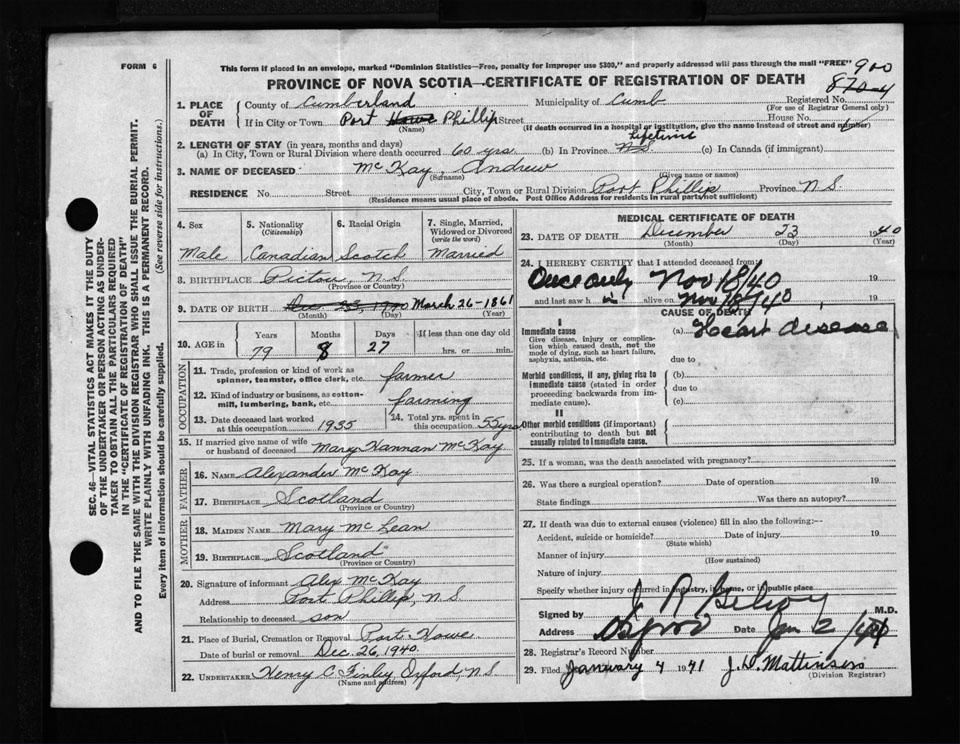 FORM 6
This form if placed in an envelope, marked "Dominion Statistics—Free, penalty for improper use $300," and properly addressed will pass through the mail "FREE"
900
PROVINCE OF NOVA SCOTIA—CERTIFICATE OF REGISTRATION OF DEATH
SEC. 46—VITAL STATISTICS ACT MAKES IT THE DUTY
OF THE UNDERTAKER OR PERSON ACTING AS UNDER-
TAKER TO OBTAIN ALL THE PARTICULARS REQUIRED
IN THE "CERTIFICATE OF REGISTRATION OF DEATH"
AND TO FILE THE SAME WITH THE DIVISION REGISTRAR WHO SHALL ISSUE THE BURIAL PERMIT.
WRITE PLAINLY WITH UNFADING INK. THIS IS A PERMANENT RECORD.
Every item of information should be carefully supplied. (See reverse side for instructions.)
1. PLACE OF DEATH
County of Cumberland Municipality of Cumb Registered No.
(For use of Registrar General only)
If in City or Town Port Howe Phillip Street House No.
(Name) (If death occurred in a hospital or institution, give the name instead of street and number)
2. LENGTH OF STAY (in years, months and days) Lifetime
(a) In City, Town or Rural Division where death occurred 60 yrs. (b) In Province N.S. (c) In Canada (if immigrant)
3. NAME OF DECEASED McKay, Andrew
(Surname) (Given name or names)
RESIDENCE No. Street City, Town or Rural Division Port Phillip Province N.S.
(Residence means usual place of abode. Post Office Address for residents in rural parts not sufficient)
4. Sex 5. Nationality (Citizenship) 6. Racial Origin 7. Single, Married, Widowed or Divorced (write the word)
Male Canadian Scotch Married
8. BIRTHPLACE Pictou, N.S.
(Province or Country)
9. DATE OF BIRTH Dec 23, 1940 March 26-1861
(Month) (Day) (Year)
10. AGE in Years Months Days If less than one day old
79 8 27 hrs. or min.
OCCUPATION
11. Trade, profession or kind of work as spinner, teamster, office clerk, etc. farmer
12. Kind of industry or business, as cotton-mill, lumbering, bank, etc. farming
13. Date deceased last worked at this occupation 1935 14. Total yrs. spent in this occupation 55 yrs
15. If married give name of wife or husband of deceased Mary Hannan McKay
FATHER
16. NAME Alexander McKay
17. BIRTHPLACE Scotland
(Province or Country)
MOTHER
18. MAIDEN NAME Mary McLean
19. BIRTHPLACE Scotland
(Province or Country)
20. Signature of informant Alex McKay
Address Port Phillip, N.S.
Relationship to deceased son
21. Place of Burial, Cremation or Removal Port Howe
Date of burial or removal Dec. 26, 1940.
22. UNDERTAKER Henry C Finley Oxford, N.S.
(Name and address)
MEDICAL CERTIFICATE OF DEATH
23. DATE OF DEATH December 23 1940
(Month) (Day) (Year)
24. I HEREBY CERTIFY that I attended deceased from
Once only Nov 18/40 19
and last saw h in alive on Nov 18/40 19
CAUSE OF DEATH
I
Immediate cause (a) Heart disease
Give disease, injury or complication which caused death, not the mode of dying, such as heart failure, asphyxia, asthenia, etc.
due to
Morbid conditions, if any, giving rise to immediate cause (stated in order proceeding backwards from immediate cause).
(b)
due to
(c)
II
Other morbid conditions (if important) contributing to death but not causally related to immediate cause.
25. If a woman, was the death associated with pregnancy?
26. Was there a surgical operation? Date of operation 19
State findings Was there an autopsy?
27. If death was due to external causes (violence) fill in also the following:—
Accident, suicide or homicide? Date of injury 19
(State which)
Manner of injury
(How sustained)
Nature of injury
Specify whether injury occurred in industry, in home, or in public place
Signed by M.D.
Address Oxford Date Jan 2/41
28. Registrar's Record Number
29. Filed January 4 1941 J. D. Mattinson
(Division Registrar)